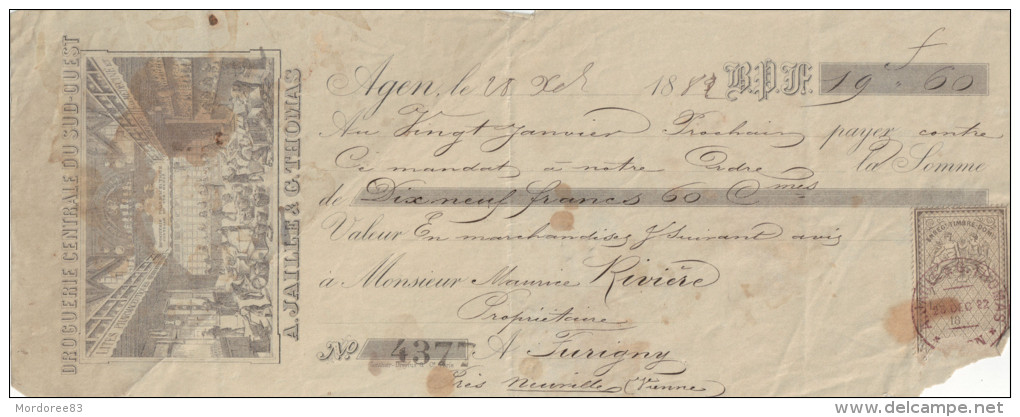 DROGUERIE CENTRALE DU SUD-OUEST
A. JAILLE & G. THOMAS
Agen, le 28 Xbre 1882 B.P.F. 19 f 60
Au Vingt Janvier Prochain payez contre
Ce mandat à notre Ordre la Somme
de Dix neuf francs 60 Cmes
Valeur En marchandises f Suivant avis
à Monsieur Maurice Rivière
Propriétaire
No 4377 A Furigny
Près Neuville (Vienne)
28 DEC 82
Mordoree83
www.delcampe.net